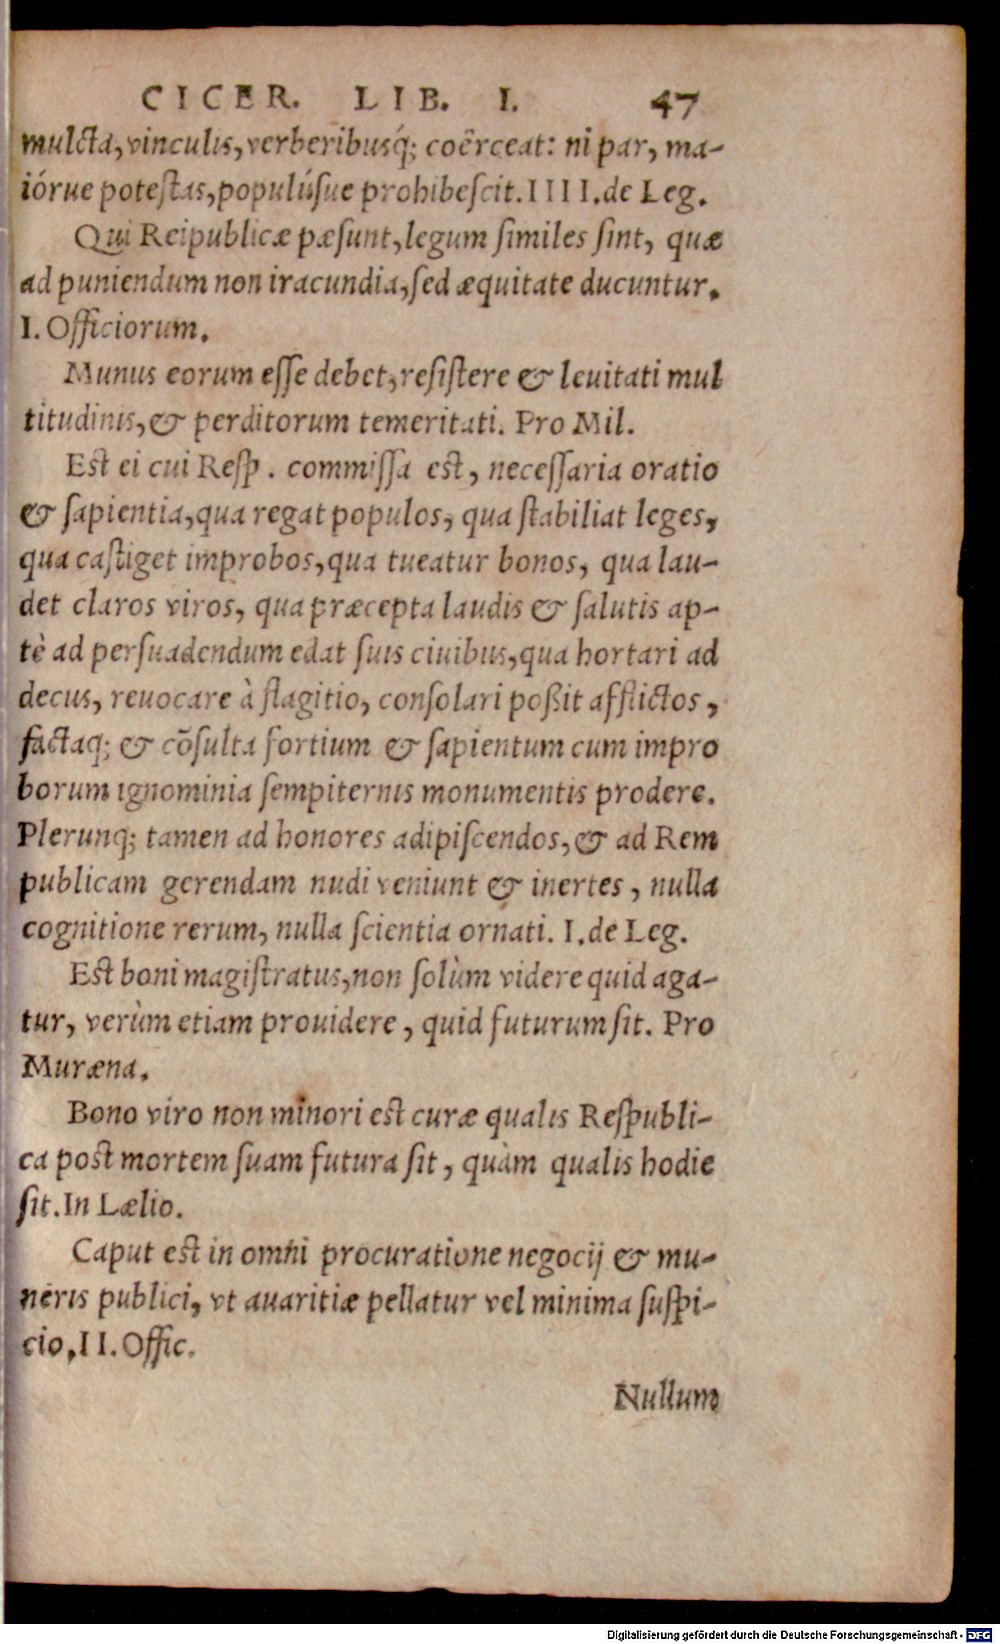 CICER. LIB. I. 47
mulcta, vinculis, verberibusq́; coërceat: ni par, ma-
iórue poteſtas, populúſue prohibeſcit. IIII. de Leg.
Qui Reipublicæ pæſunt, legum ſimiles ſint, quæ
ad puniendum non iracundia, ſed æquitate ducuntur.
I. Officiorum.
Munus eorum eſſe debet, reſiſtere & leuitati mul
titudinis, & perditorum temeritati. Pro Mil.
Est ei cui Reſp. commiſſa est, neceſſaria oratio
& ſapientia, qua regat populos, qua ſtabiliat leges,
qua caſtiget improbos, qua tueatur bonos, qua lau-
det claros viros, qua præcepta laudis & ſalutis ap-
tè ad perſuadendum edat ſuis ciuibus, qua hortari ad
decus, reuocare à flagitio, conſolari poßit afflictos,
factaq; & cõſulta fortium & ſapientum cum impro
borum ignominia ſempiternis monumentis prodere.
Plerunq; tamen ad honores adipiſcendos, & ad Rem
publicam gerendam nudi veniunt & inertes, nulla
cognitione rerum, nulla ſcientia ornati. I. de Leg.
Est boni magiſtratus, non ſolùm videre quid aga-
tur, verùm etiam prouidere, quid futurum ſit. Pro
Muræna.
Bono viro non minori est curæ qualis Reſpubli-
ca post mortem ſuam futura ſit, quàm qualis hodie
ſit. In Lælio.
Caput est in omni procuratione negocij & mu-
neris publici, vt auaritiæ pellatur vel minima ſuſpi-
cio. II. Offic.
Nullum
Digitalisierung gefördert durch die Deutsche Forschungsgemeinschaft - DFG